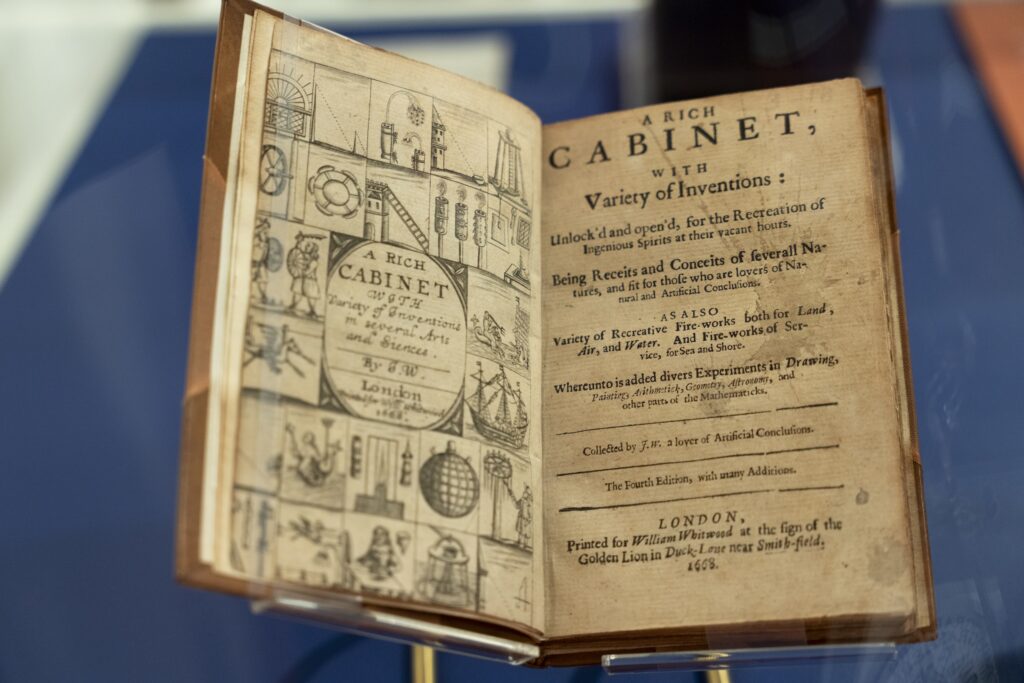 A RICH
CABINET
WITH
Variety of Inventions
in several Arts
and Siences.
By J.W.
London
1668.
A RICH
CABINET,
WITH
Variety of Inventions:
Unlock'd and open'd, for the Recreation of
Ingenious Spirits at their vacant hours.
Being Receits and Conceits of ſeverall Na-
tures, and fit for thoſe who are lovers of Na-
tural and Artificial Concluſions.
AS ALSO
Variety of Recreative Fire-works both for Land,
Air, and Water. And Fire-works of Ser-
vice, for Sea and Shore.
Whereunto is added divers Experiments in Drawing,
Painting, Arithmetick, Geometry, Aſtronomy, and
other parts of the Mathematicks.
Collected by J.W. a lover of Artificial Concluſions.
The Fourth Edition, with many Additions.
LONDON,
Printed for William Whitwood at the ſign of the
Golden Lion in Duck-Lane near Smith-field.
1668.